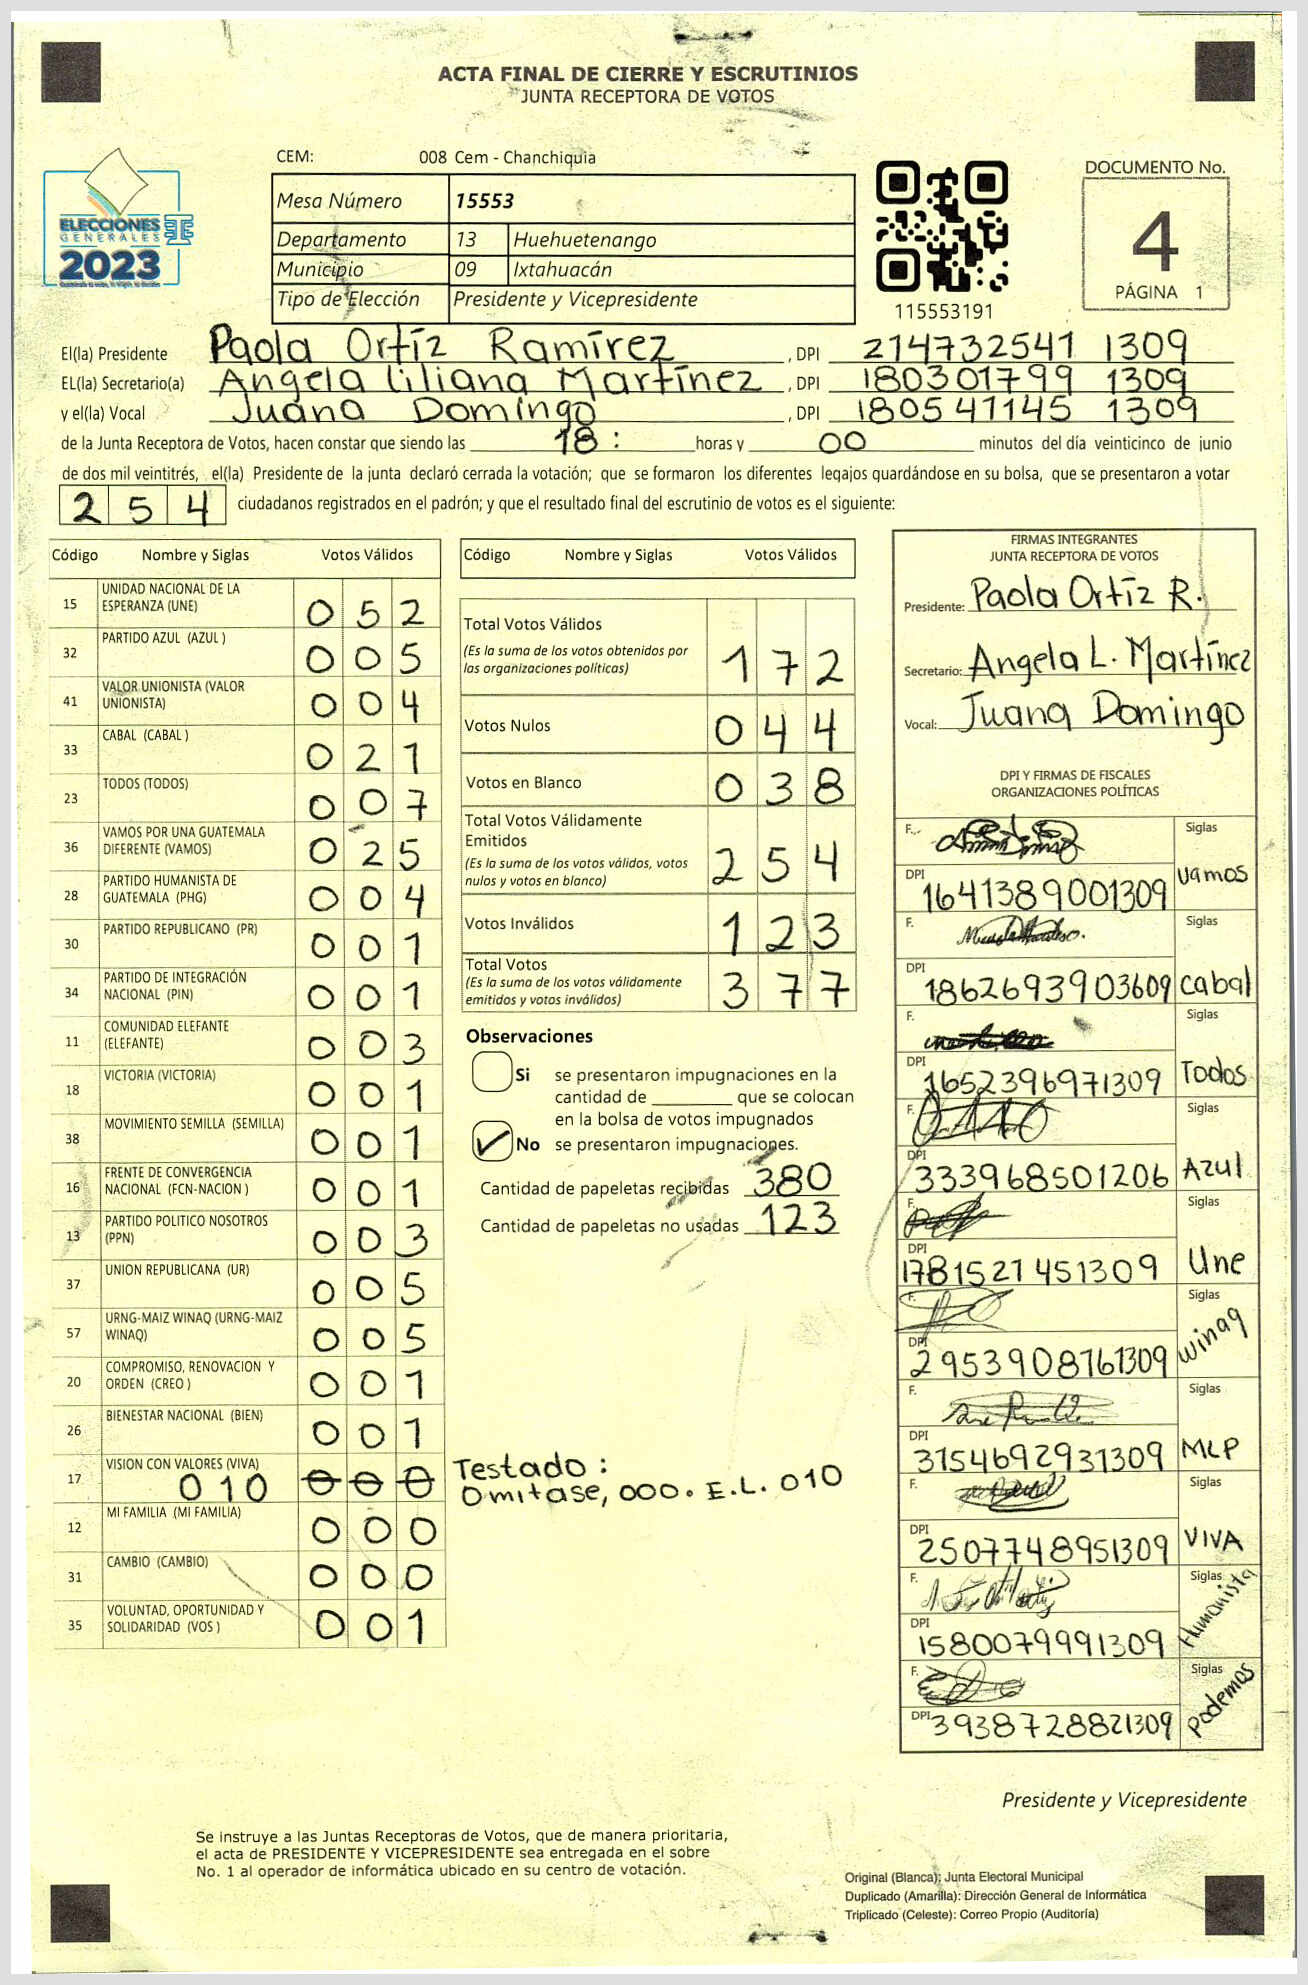 ACTA FINAL DE CIERRE Y ESCRUTINIOS
JUNTA RECEPTORA DE VOTOS
CEM: 008 Cem - Chanchiquia
ELECCIONES
GENERALES
2023
Mesa Número 15553
Departamento 13 Huehuetenango
Municipio 09 Ixtahuacán
Tipo de Elección Presidente y Vicepresidente
115553191
DOCUMENTO No.
4
PÁGINA 1
El(la) Presidente Paola Ortíz Ramírez , DPI 214732541 1309
EL(la) Secretario(a) Angela Liliana Martínez , DPI 180301799 1309
y el(la) Vocal Juana Domingo , DPI 180541145 1309
de la Junta Receptora de Votos, hacen constar que siendo las 18 : horas y 00 minutos del día veinticinco de junio
de dos mil veintitrés, el(la) Presidente de la junta declaró cerrada la votación; que se formaron los diferentes legajos guardándose en su bolsa, que se presentaron a votar
254 ciudadanos registrados en el padrón; y que el resultado final del escrutinio de votos es el siguiente:
Código Nombre y Siglas Votos Válidos
15 UNIDAD NACIONAL DE LA
ESPERANZA (UNE) 052
32 PARTIDO AZUL (AZUL ) 005
41 VALOR UNIONISTA (VALOR
UNIONISTA) 004
33 CABAL (CABAL ) 021
23 TODOS (TODOS) 007
36 VAMOS POR UNA GUATEMALA
DIFERENTE (VAMOS) 025
28 PARTIDO HUMANISTA DE
GUATEMALA (PHG) 004
30 PARTIDO REPUBLICANO (PR) 001
34 PARTIDO DE INTEGRACIÓN
NACIONAL (PIN) 001
11 COMUNIDAD ELEFANTE
(ELEFANTE) 003
18 VICTORIA (VICTORIA) 001
38 MOVIMIENTO SEMILLA (SEMILLA) 001
16 FRENTE DE CONVERGENCIA
NACIONAL (FCN-NACION ) 001
13 PARTIDO POLITICO NOSOTROS
(PPN) 003
37 UNION REPUBLICANA (UR) 005
57 URNG-MAIZ WINAQ (URNG-MAIZ
WINAQ) 005
20 COMPROMISO, RENOVACION Y
ORDEN (CREO ) 001
26 BIENESTAR NACIONAL (BIEN) 001
17 VISION CON VALORES (VIVA)
010 000
12 MI FAMILIA (MI FAMILIA) 000
31 CAMBIO (CAMBIO) 000
35 VOLUNTAD, OPORTUNIDAD Y
SOLIDARIDAD (VOS ) 001
Código Nombre y Siglas Votos Válidos
Total Votos Válidos
(Es la suma de los votos obtenidos por
las organizaciones políticas) 172
Votos Nulos 044
Votos en Blanco 038
Total Votos Válidamente
Emitidos
(Es la suma de los votos válidos, votos
nulos y votos en blanco) 254
Votos Inválidos 123
Total Votos
(Es la suma de los votos válidamente
emitidos y votos inválidos) 377
Observaciones
Si se presentaron impugnaciones en la
cantidad de ________ que se colocan
en la bolsa de votos impugnados
No se presentaron impugnaciones.
Cantidad de papeletas recibidas 380
Cantidad de papeletas no usadas 123
Testado :
Omitase, 000. E.L. 010
FIRMAS INTEGRANTES
JUNTA RECEPTORA DE VOTOS
Presidente: Paola Ortíz R.
Secretario: Angela L. Martínez
Vocal: Juana Domingo
DPI Y FIRMAS DE FISCALES
ORGANIZACIONES POLÍTICAS
F. Siglas
DPI 1641389001309 Vamos
F. Siglas
DPI 1862693903609 Cabal
F. Siglas
DPI 1652396971309 Todos
F. Siglas
DPI 333968501206 Azul
F. Siglas
DPI 1781521451309 Une
F. Siglas
DPI 2953908761309 Winaq
F. Siglas
DPI 3154692931309 MLP
F. Siglas
DPI 2507748951309 VIVA
F. Siglas
DPI 1580079991309 Humanista
F. Siglas
DPI 3938728821309 Podemos
Presidente y Vicepresidente
Se instruye a las Juntas Receptoras de Votos, que de manera prioritaria,
el acta de PRESIDENTE Y VICEPRESIDENTE sea entregada en el sobre
No. 1 al operador de informática ubicado en su centro de votación.
Original (Blanca): Junta Electoral Municipal
Duplicado (Amarilla): Dirección General de Informática
Triplicado (Celeste): Correo Propio (Auditoría)